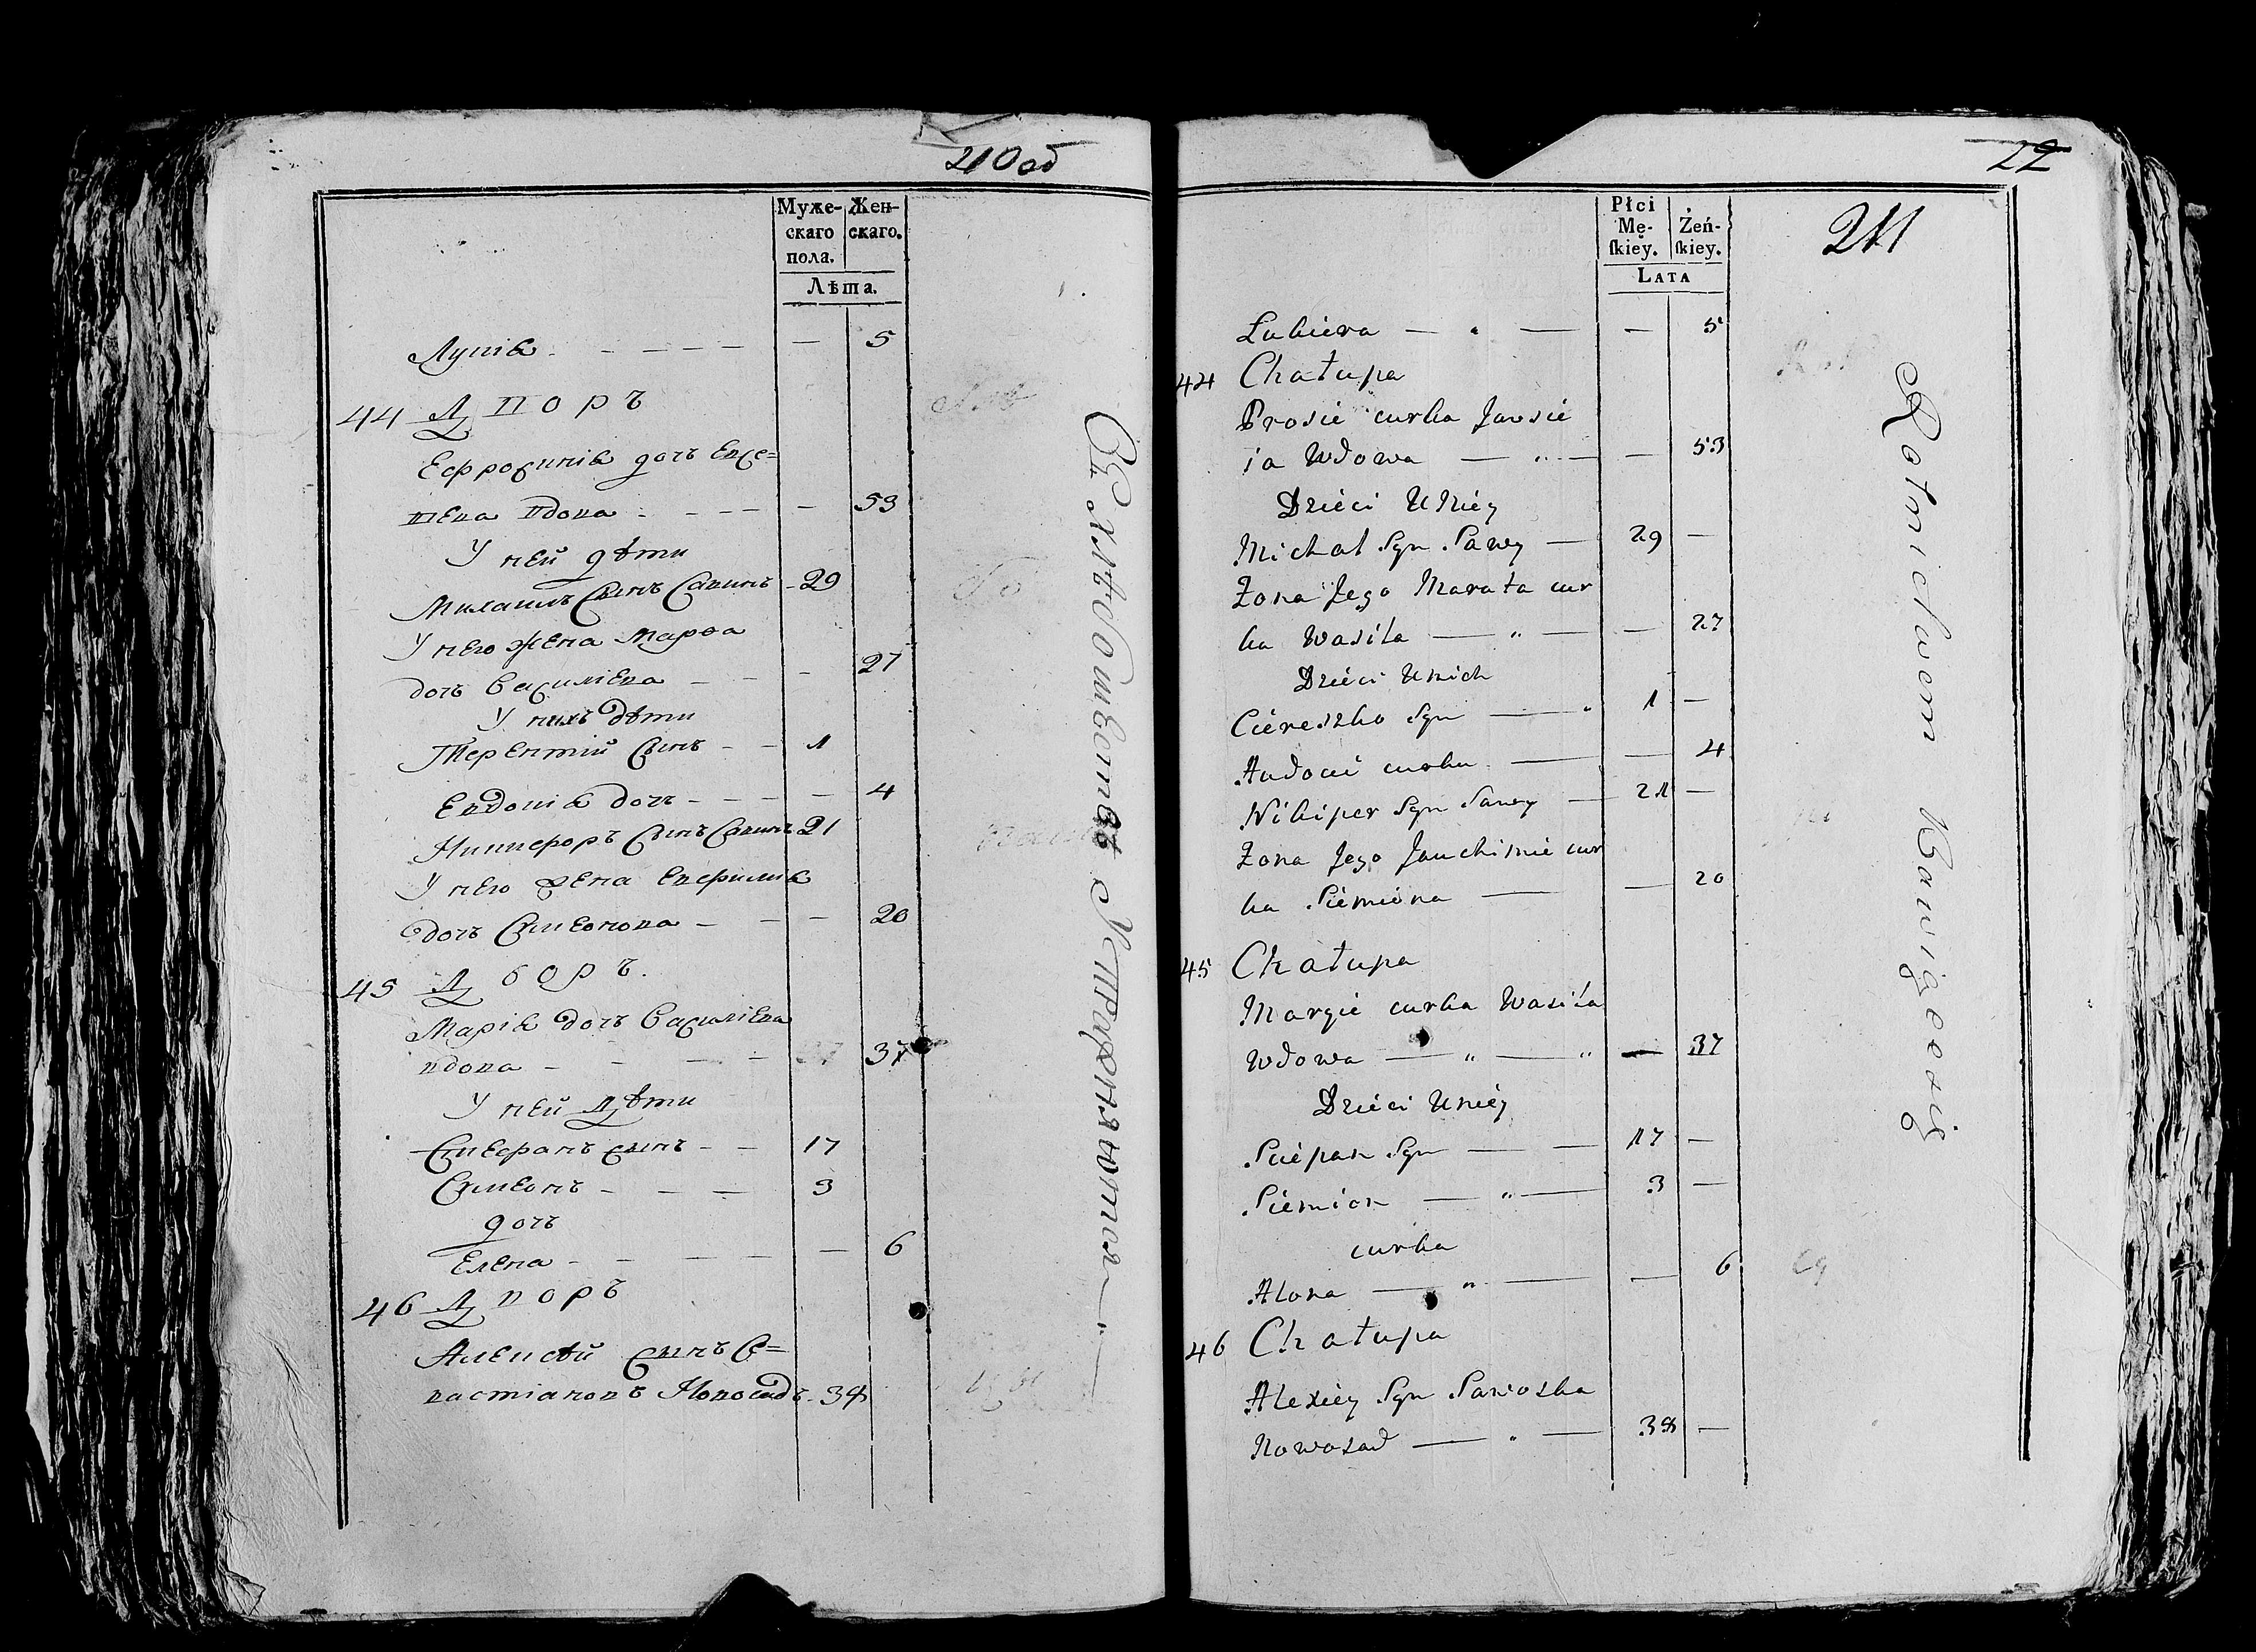 210 об
Муже-
скаго
пола.
Жен-
скаго.
Лѣта.
— 5
44 Дворъ
Ефросинія дочь Евсе=
ѣева вдова - - - - 53
У ней дѣти
Михаилъ сынъ Савинъ - 29
У него жена Марѳа
дочь Василіева - - - 27
У нихъ дѣти
Терентій сынъ - - 1
Евдокія дочь - - - - 4
Никифоръ сынъ Савинъ 21
У него жена Евфимія
дочь Симеонова - - - 20
45 Дворъ.
Марія дочь Василіева
вдова - - - - 37
У ней дѣти
Стефанъ сынъ - - 17
Симеонъ - - - 3
дочь
Елена - - - - — 6
46 Дворъ
Алексѣй сынъ Се=
вастіановъ Новосадъ - 38
22
211
Płci
Mę-
skiey.
Żeń-
skiey.
LATA
— 5
44 Chałupa
Prosie curka Jawsie
ia Wdowa — „ — — 53
Dzieci Uniey
Michał Syn Sawy — 29 —
Żona Jego Marata cur
ka Wasila — „ — — 27
Dzieci Unich
Ciereszko Syn — „ 1 —
Audocie curka — — 4
Nikiper Syn Sawy — 21 —
Żona Jego Jauchimie cur
ka Siemiona — — 20
45 Chałupa
Margie curka Wasila
Wdowa — „ — „ — 37
Dzieci Uniey
Sciepan Syn — — 17 —
Siemion — „ — 3 —
curka
Alona — „ — — 6
46 Chałupa
Alexiey Syn Sawostka
Nowosad — „ — 38 —